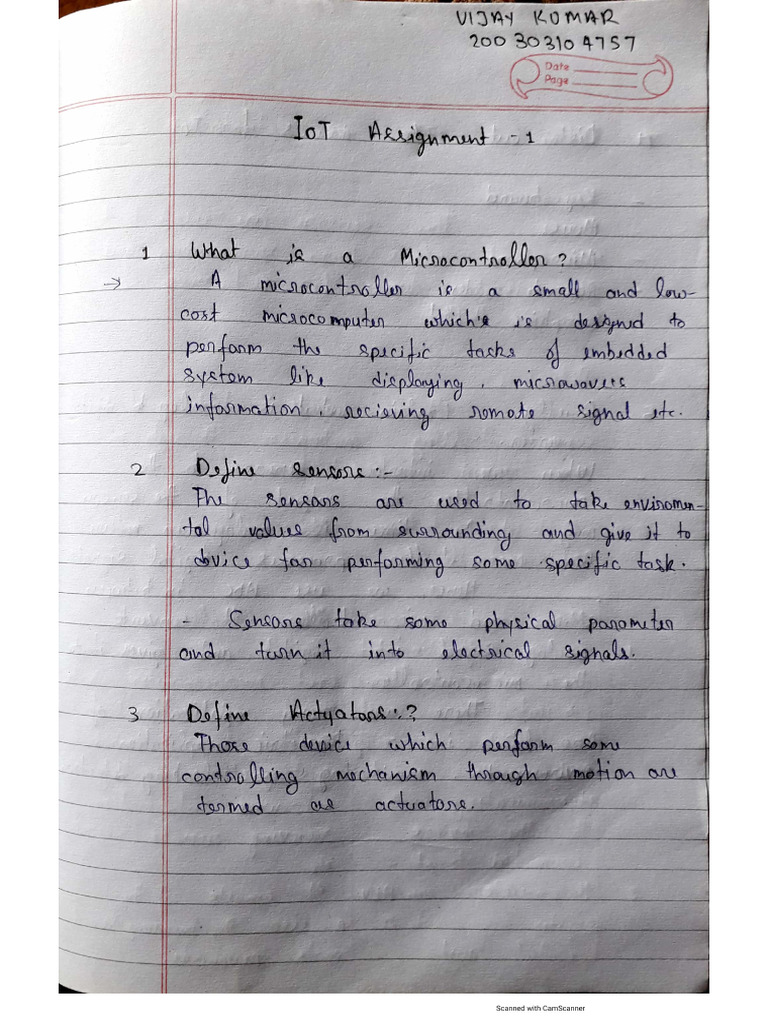 VIJAY KUMAR
200 30310 4757
Date
Page
IoT Assignment - 1
1 What is a Microcontroller?
→ A microcontroller is a small and low-
cost microcomputer which's is designed to
perform the specific tasks of embedded
system like displaying, microwave's
information, recieving remote signal etc.
2 Define Sensors :-
The sensors are used to take enviromen-
tal values from surrounding and give it to
device for performing some specific task.
- Sensors take some physical parameter
and turn it into electrical signals.
3 Define Actuators:?
Those device which perform some
controlling mechanism through motion are
termed as actuators.
Scanned with CamScanner